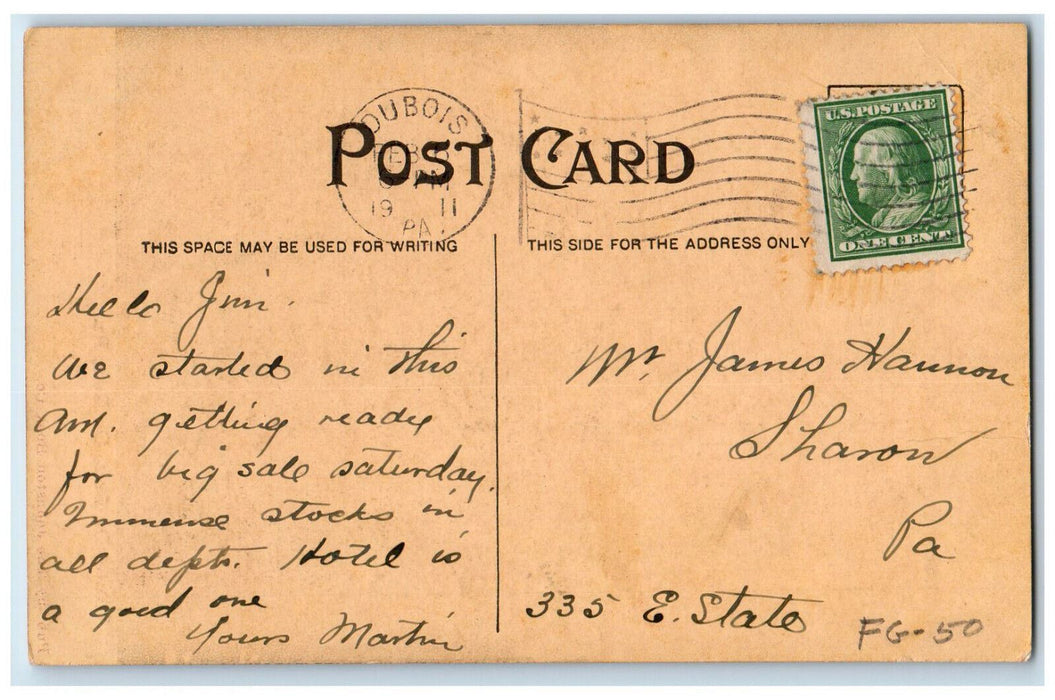 DUBOIS
FEB
PM
19 11
PA.
POST CARD
U.S. POSTAGE
ONE CENT
THIS SPACE MAY BE USED FOR WRITING
THIS SIDE FOR THE ADDRESS ONLY
Hello Jim.
We started in this
AM. getting ready
for big sale saturday.
Immense stocks in
all depts. Hotel is
a good one
Yours Martin
Mr. James Hannon
Sharon
Pa
335 E. State
FG-50